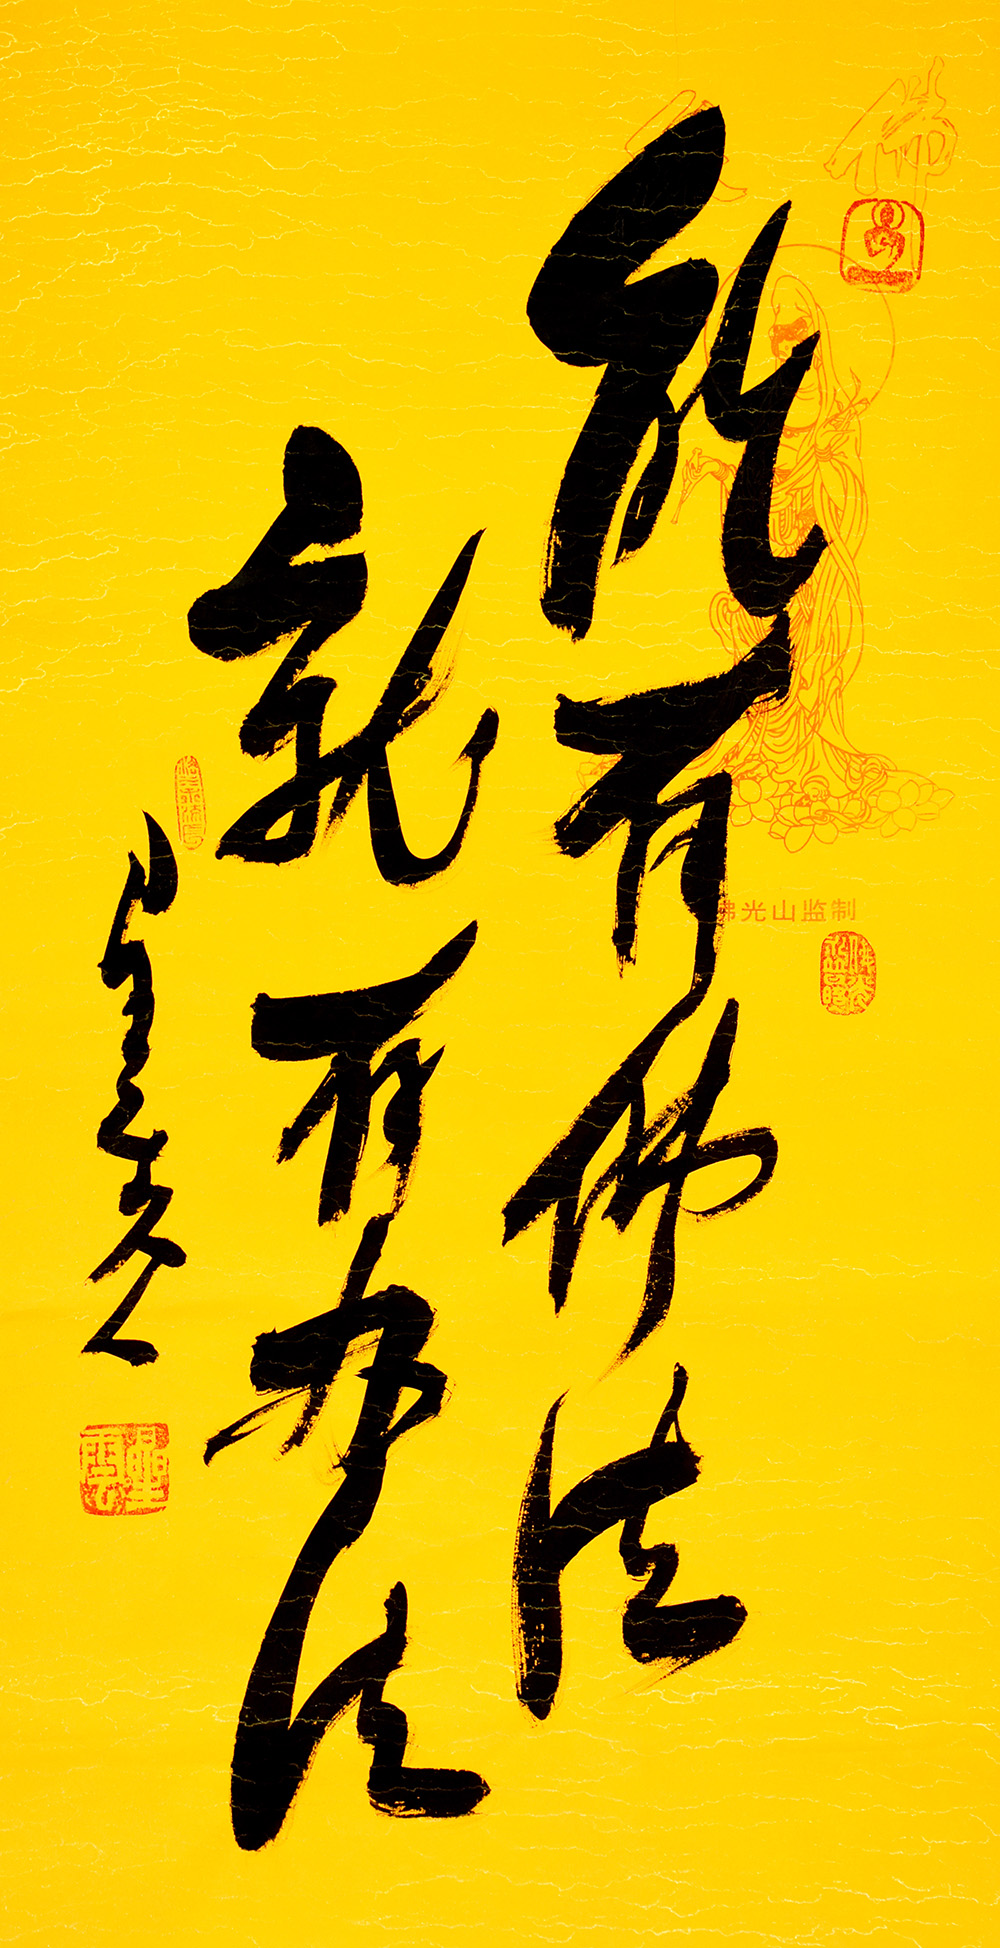 佛
能有佛法
就有办法
星云
佛光山监制
星雲